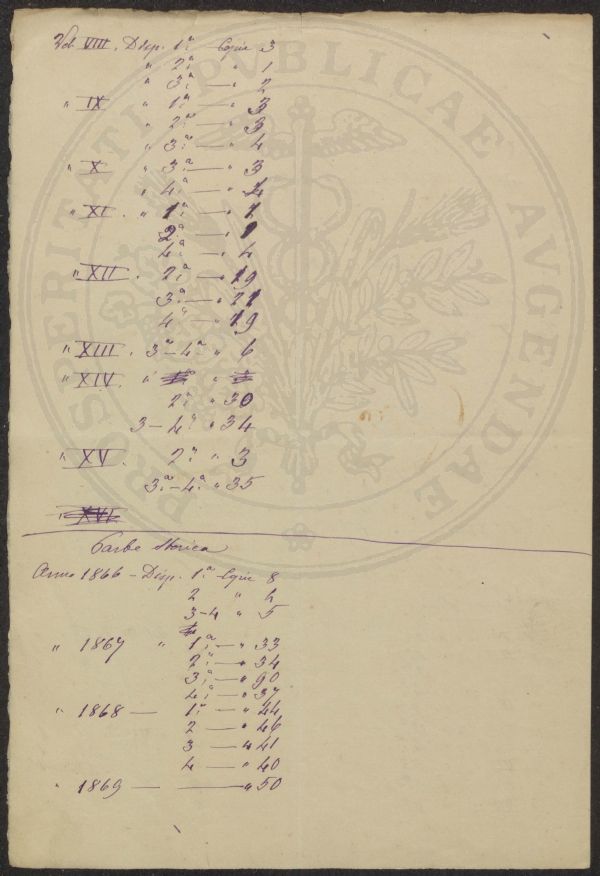 Vol VIII. Disp. 1ª Copie 3
" 2ª — " 1
" 3ª — " 2
" IX " 1ª — " 3
" 2ª — " 3
" 3ª — " 4
" X " 3ª — " 3
" 4ª —
" XI. " 1ª —
2ª — " 1
4ª — " 4
" XII. 2ª — " 19
3ª — " 21
4ª — " 19
" XIII. 3ª-4ª " 6
" XIV. "
2ª " 30
3-4ª " 34
" XV. 2ª " 3
3ª-4ª " 35
" XVI
Parte Storica
Anno 1866 - Disp. 1ª Copie 8
2 "
3-4 " 5
" 1867 " 1ª — " 33
2ª — " 34
3ª — " 90
4ª — " 37
" 1868 — 1ª — " 44
2 — " 46
3 — " 41
4 — " 40
" 1869 — — " 50
PROSPERITATI PVBLICAE AVGENDAE